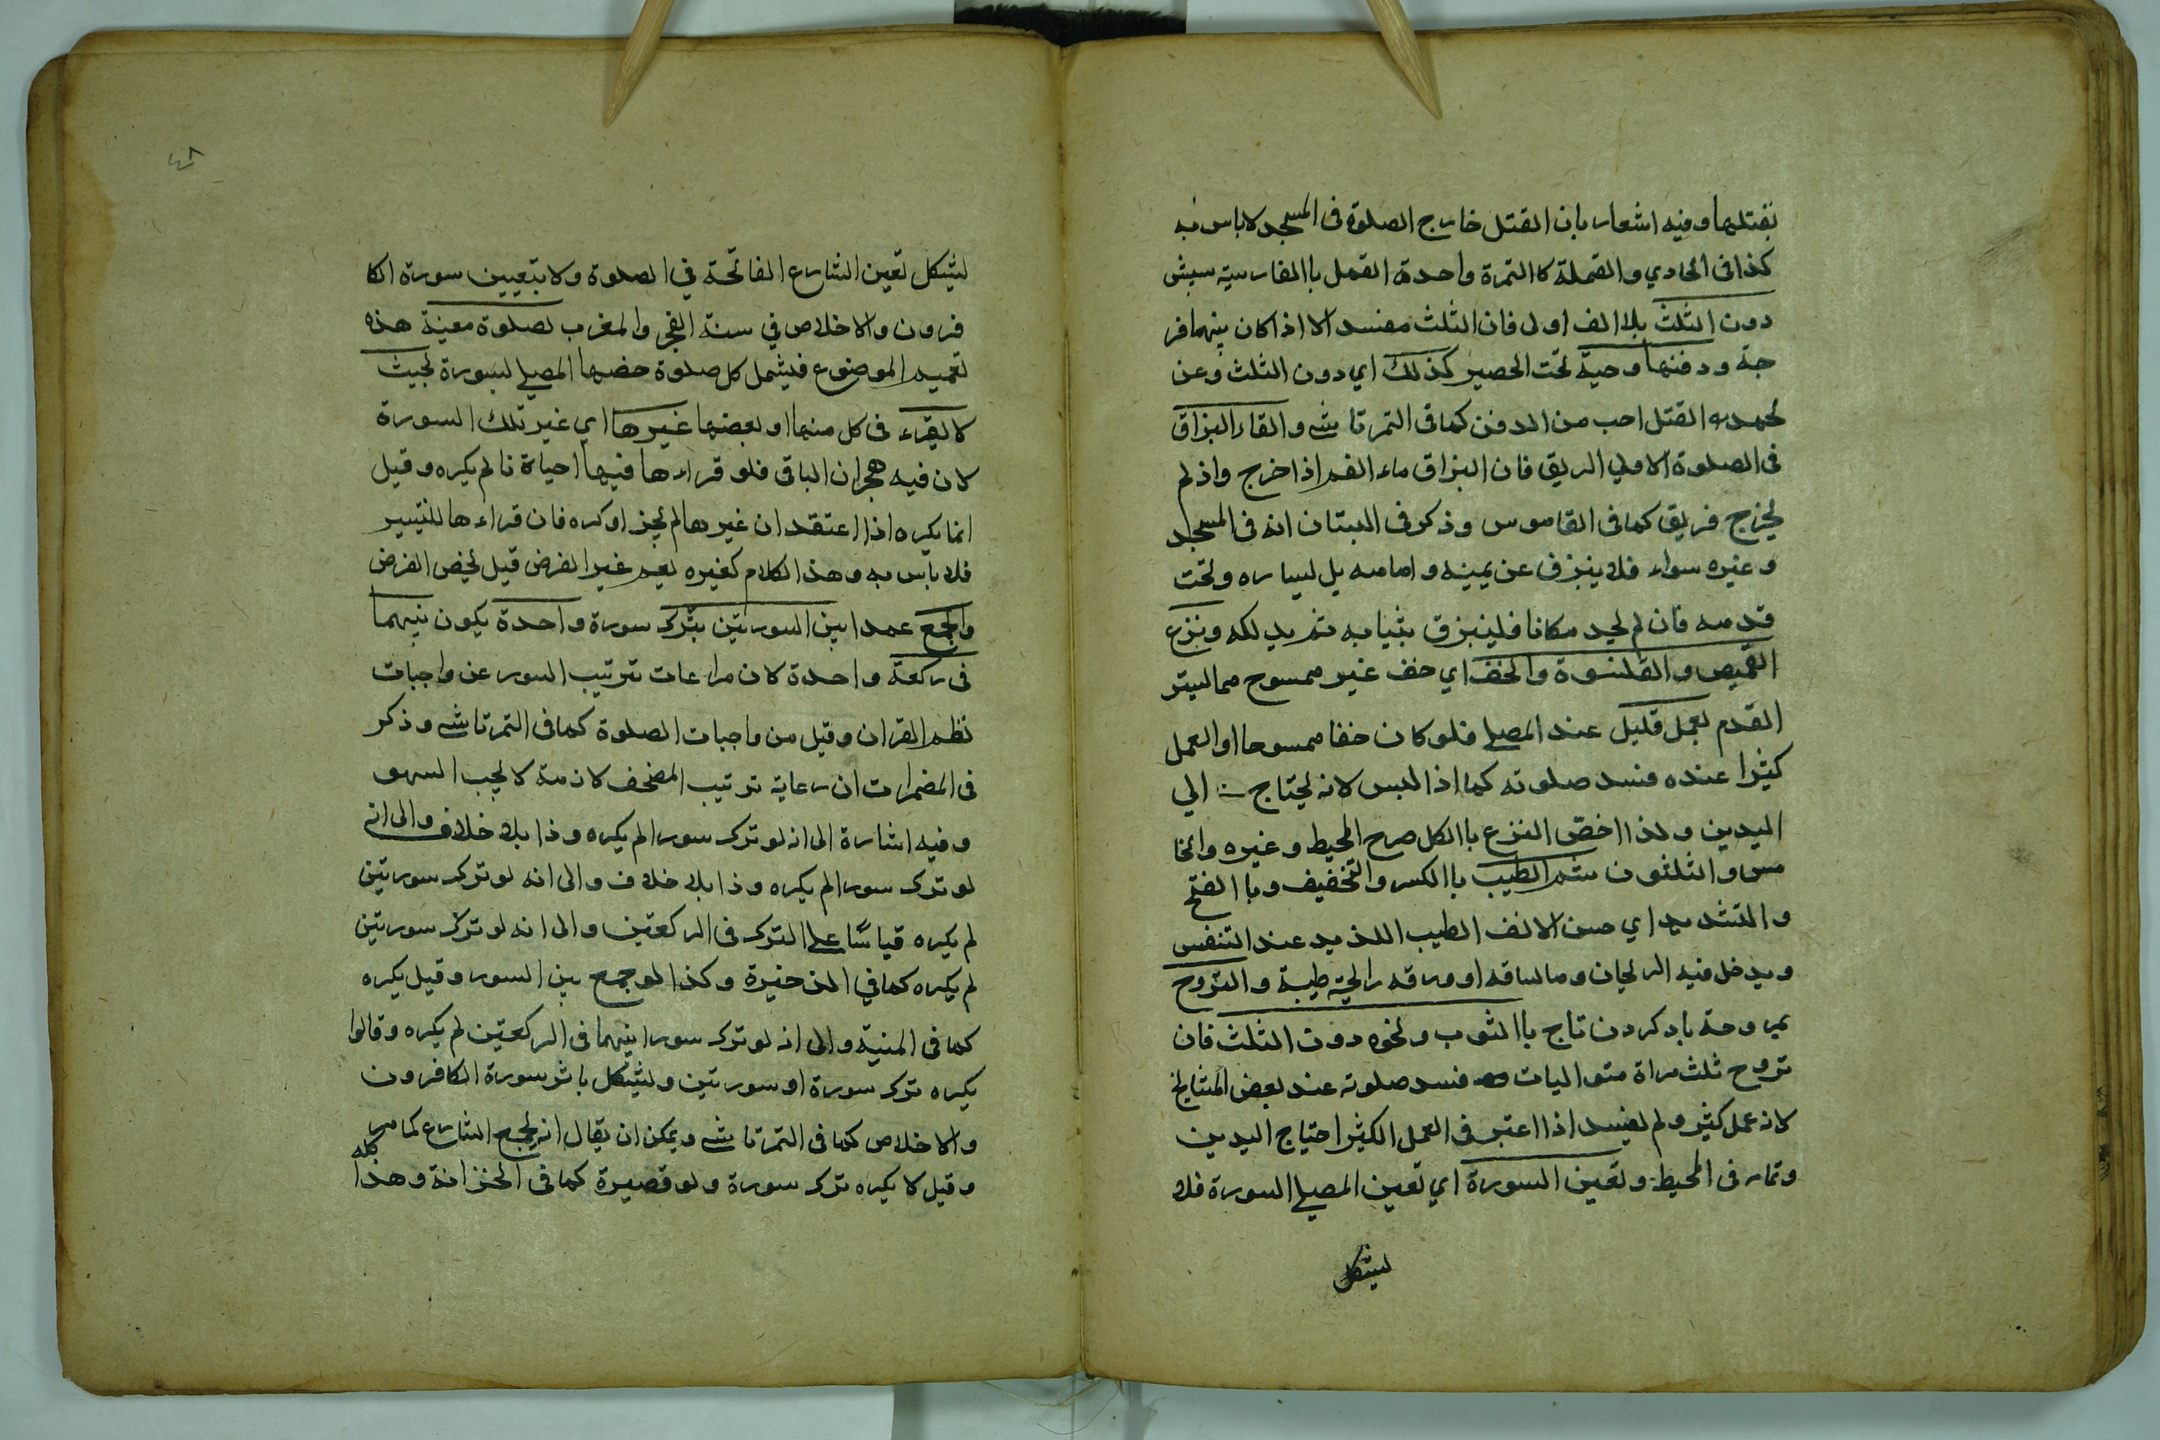 بقتلها وفيه اشعار بان القتل خارج الصلوة فى المسجد لاباس به
كذا فى الحادي والقملة كا التمرة واحدة القمل با الفارسية سپش
دون الثلث بلا الف اولى فان الثلث مفسد الا اذا كان بينهما فر
جة ودفنها وحية تحت الحصير كذلك اي دون الثلث وعن
محمد القتل احب من الدفن كما فى التمرتاشى والقاء البزاق
فى الصلوة الاولي الريق فان البزاق ماء الفم اذا خرج واذ لم
يخرج فريق كما فى القاموس وذكر فى البستان انه فى المسجد
وغيره سواء فلا يبزق عن يمينه وامامه بل ليساره وتحت
قدمه فان لم يجد مكانا فليبزق بثيابه ثم يدلكه ونزع
القميص والقلنسوة والخف اي خف غير ممسوح مما ليستر
القدم بعمل قليل عند المصلى فلو كان خفا ممسوحا او العمل
كثيرا عنده فسد صلوته كما اذا لبس لانه يحتاج الي
اليدين ولذا اخص النزع با الكل صرح المحيط وغيره والخا
مس والثلثون شم الطيب با الكسر والتخفيف وبا الفتح
والتشديد اي حسن الانف الطيب اللذيد عند التنفس
ويدخل فيه الريحان وما لساقه او ورقه رائحة طيبة والتروح
بمروحة باد كردن تاج با الثوب ونحوه دون الثلث فان
تروح ثلث مراة متواليات فسد صلوته عند بعض المشايخ
لانه عمل كثير ولم يفسد اذا اعتبر فى العمل الكثير احتياج اليدين
وتمامه فى المحيط وتعين السورة اي تعين المصلى السورة فلا
ليشكل
٤٨
ليشكل تعين الشارع الفاتحة في الصلوة ولا بتعيين سورة الكا
فرون والاخلاص في سنة الفجر والمغرب لصلوة معينة هذه
تعميم الموضوع فيشمل كل صلوة خصها المصلى بسورة بحيث
لا يقرء فى كل منها او بعضها غيرها اي غير تلك السورة
لان فيه هجران الباقى فلو قراءها فيها احيانا لم يكره وقيل
انما يكره اذا اعتقد ان غيرها لم يجز او كره فان قراءها للتيسير
فلا باس به وهذا الكلام كغيره يعم غير الفرض قيل يخص الفرض
والجمع عمدا بين السورتين بترك سورة واحدة يكون بينهما
فى ركعة واحدة لان مراعات ترتيب السور عن واجبات
نظم القران وقيل من واجبات الصلوة كما فى التمرتاشى وذكر
فى المضمرات ان رعاية ترتيب المصحف لازمة لا يجب السهو
وفيه اشارة الى انه لو ترك سورا لم يكره وذا بلا خلاف والى انه
لو ترك سورا لم يكره وذا بلا خلاف والى انه لو ترك سورتين
لم يكره قياسًا على الترك فى الركعتين والى انه لو ترك سورتين
لم يكره كما في الذخيرة وكذا لو جمع بين السور وقيل يكره
كما فى المنية والى انه لو ترك سورا بينهما فى الركعتين لم يكره وقالوا
يكره ترك سورة او سورتين وليشكل باثر سورة الكافرون
والاخلاص كما فى التمرتاشى ويمكن ان يقال انه لجمع الشارع كما مر
وقيل لا يكره ترك سورة ولو قصيرة كما فى الخزانة وهذا كله